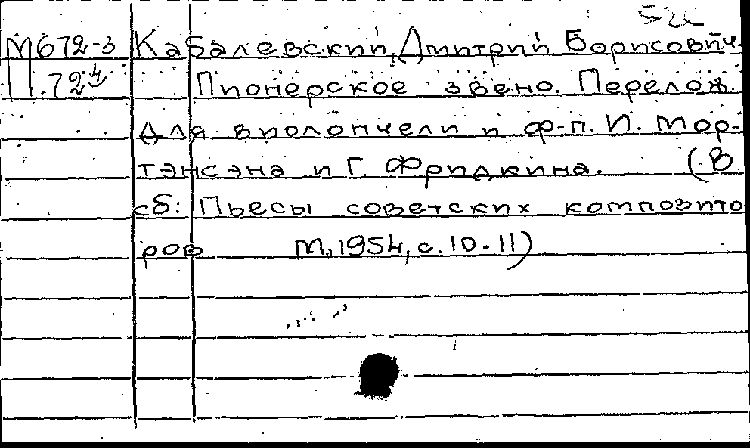 М672-3 Кабалевский, Дмитрий Борисович.
П.724 Пионерское звено. Перелож.
для виолончели и ф-п. И. Мор-
тэнсэна и Г. Фридкина. (В
сб: Пьесы советских композито
ров М, 1954, с. 10-11)